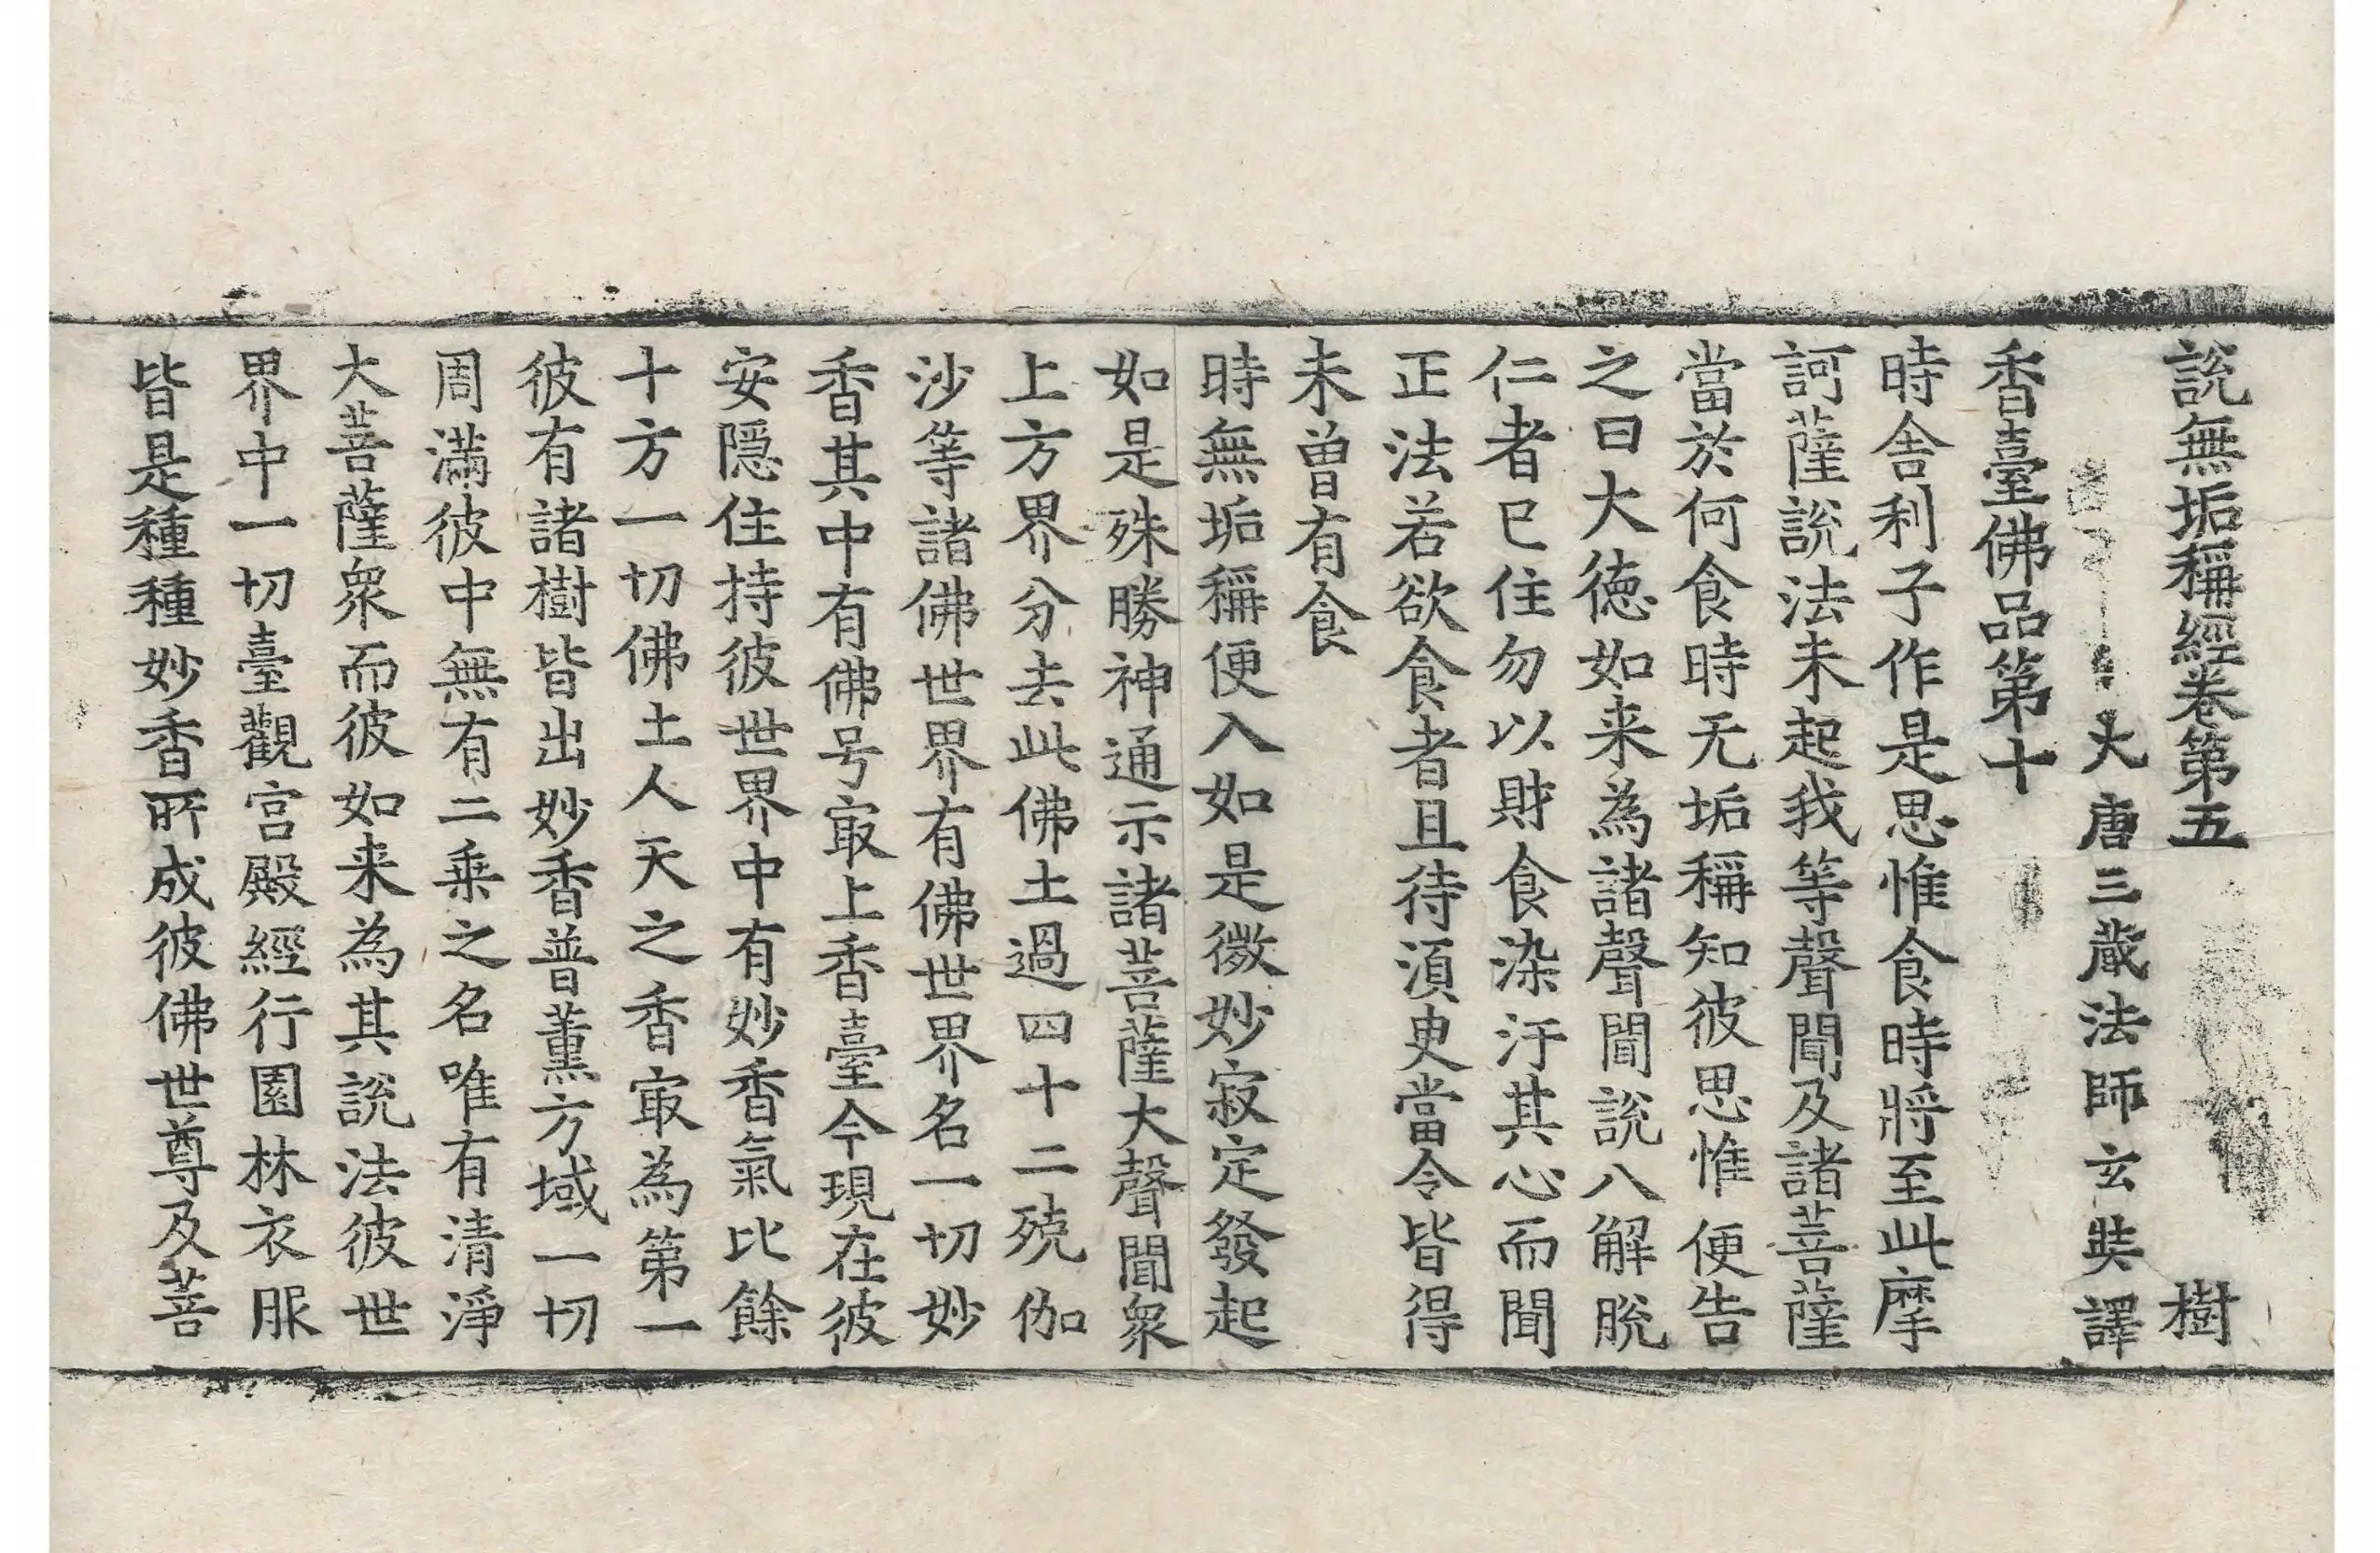 說無垢稱經卷第五 樹
大唐三藏法師玄奘譯
香臺佛品第十
時舍利子作是思惟食時將至此摩
訶薩說法未起我等聲聞及諸菩薩
當於何食時无垢稱知彼思惟便告
之曰大德如来為諸聲聞說八解脫
仁者已住勿以財食染汙其心而聞
正法若欲食者且待湏臾當令皆得
未曾有食
時無垢稱便入如是微妙寂定發起
如是殊勝神通示諸菩薩大聲聞衆
上方界分去此佛土過四十二殑伽
沙等諸佛世界有佛世界名一切妙
香其中有佛号㝡上香臺今現在彼
安隱住持彼世界中有妙香氣比餘
十方一切佛土人天之香㝡為第一
彼有諸樹皆出妙香普薰方域一切
周滿彼中無有二乗之名唯有清淨
大菩薩衆而彼如来為其說法彼世
界中一切臺觀宮殿經行園林衣服
皆是種種妙香所成彼佛世尊及菩